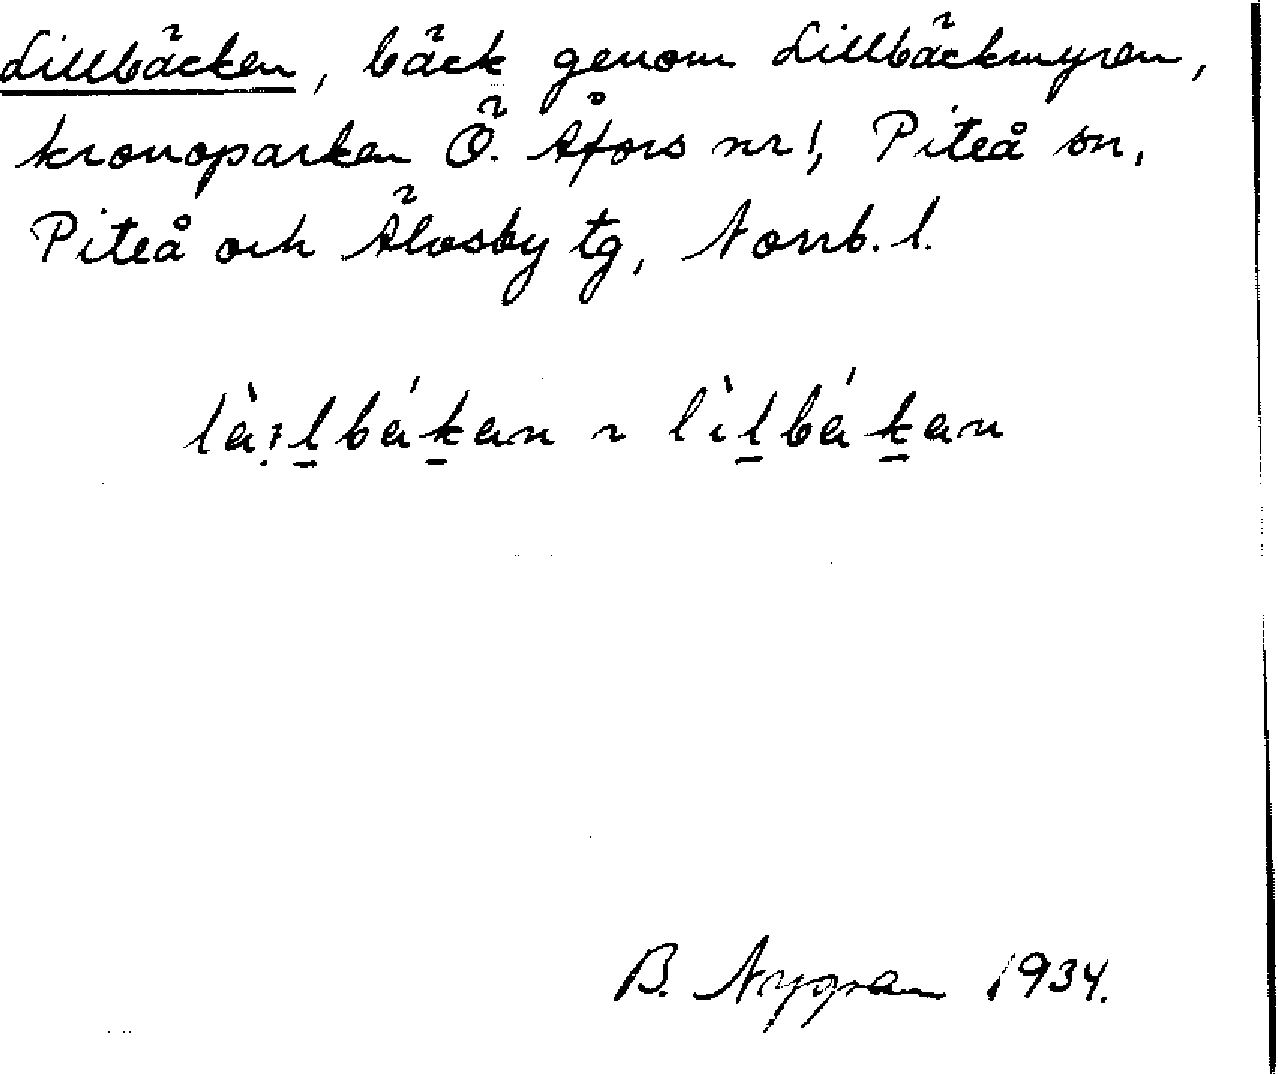 Lillbäcken, bäck genom Lillbäckmyren,
kronoparken Ö. Åfors nr 1, Piteå sn,
Piteå och Älvsby tg, Norrb. l.
là:l̠bákan ~ lìl̠bákan
B. Nygren 1934.